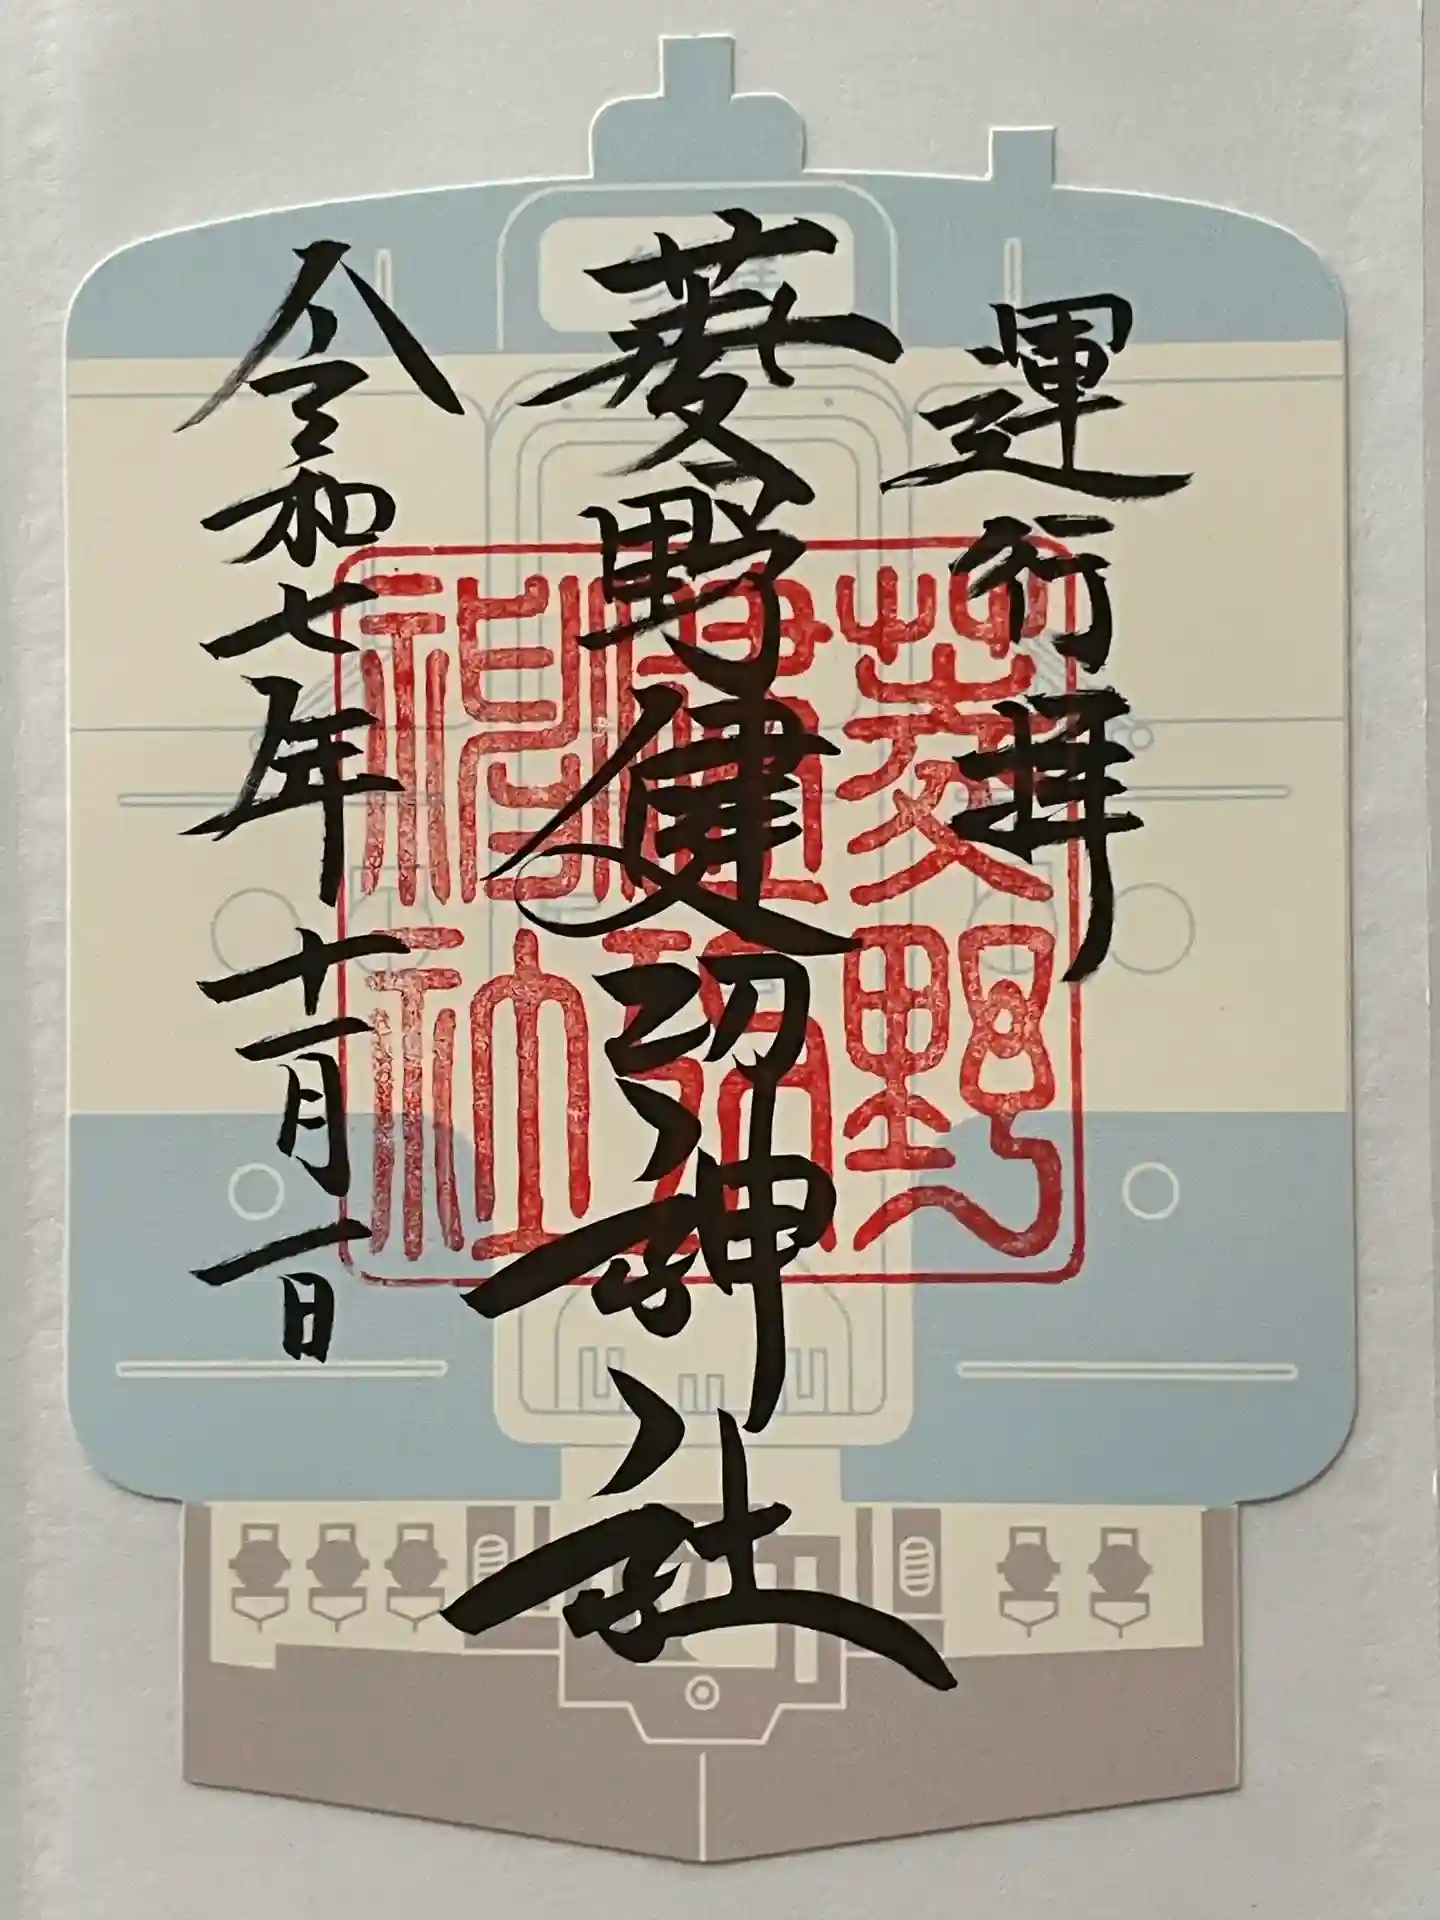 運行拝
菱野健功神社
令和七年十一月一日
菱野
健功
神社